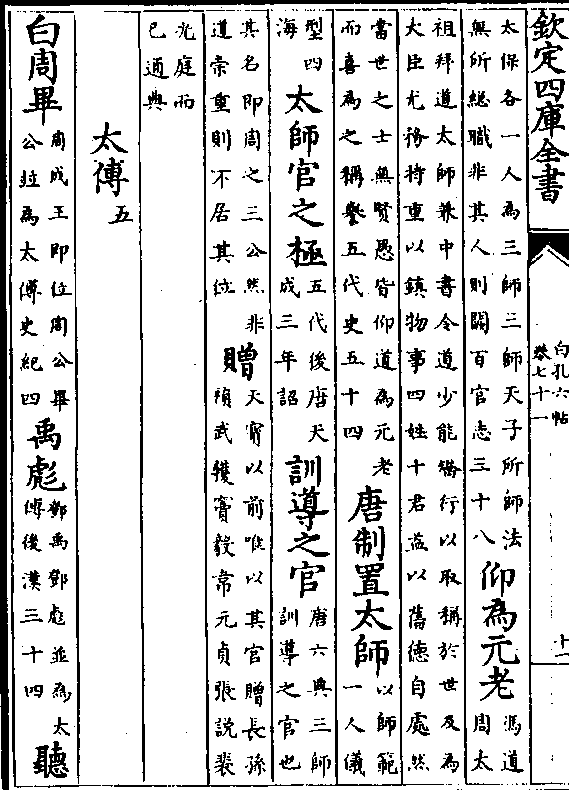 欽定四庫全書
白孔六帖
卷七十一
十一
太保各一人為三師三師天子所師法
無所總職非其人則闕百官志三十八
仰為元老
馮道
周太
祖拜道太師兼中書令道少能矯行以取稱於世及為
大臣尤務持重以鎮物事四姓十君益以舊德自處然
當世之士無賢愚皆仰道為元老
而喜為之稱譽五代史五十四
唐制置太師
以師範
一人儀
型四
海
太師官之極
五代後唐天
成三年詔
訓導之官
唐六典三師
訓導之官也
其名即周之三公然非
道崇重則不居其位
贈
天寳以前唯以其官贈長孫
禎武彠竇毅韋元貞張説裴
光庭而
已通典
太傅五
白周畢
周成王即位周公畢
公並為太傅史紀四
禹彪
鄧禹鄧彪並為太
傅後漢三十四
聽